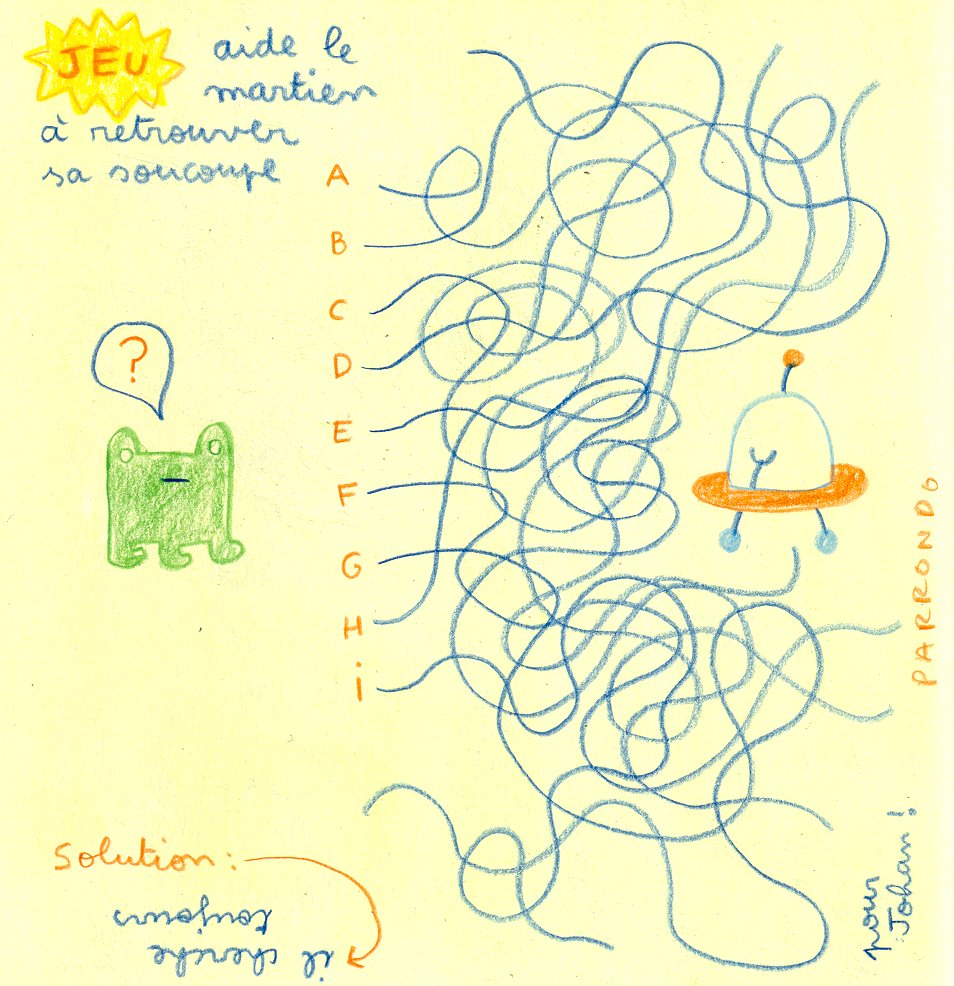 JEU
aide le
martien
à retrouver
sa soucoupe
A
B
C
D
E
F
G
H
i
?
PARRONDO
Solution:
il cherche
toujours
pour
Johan!